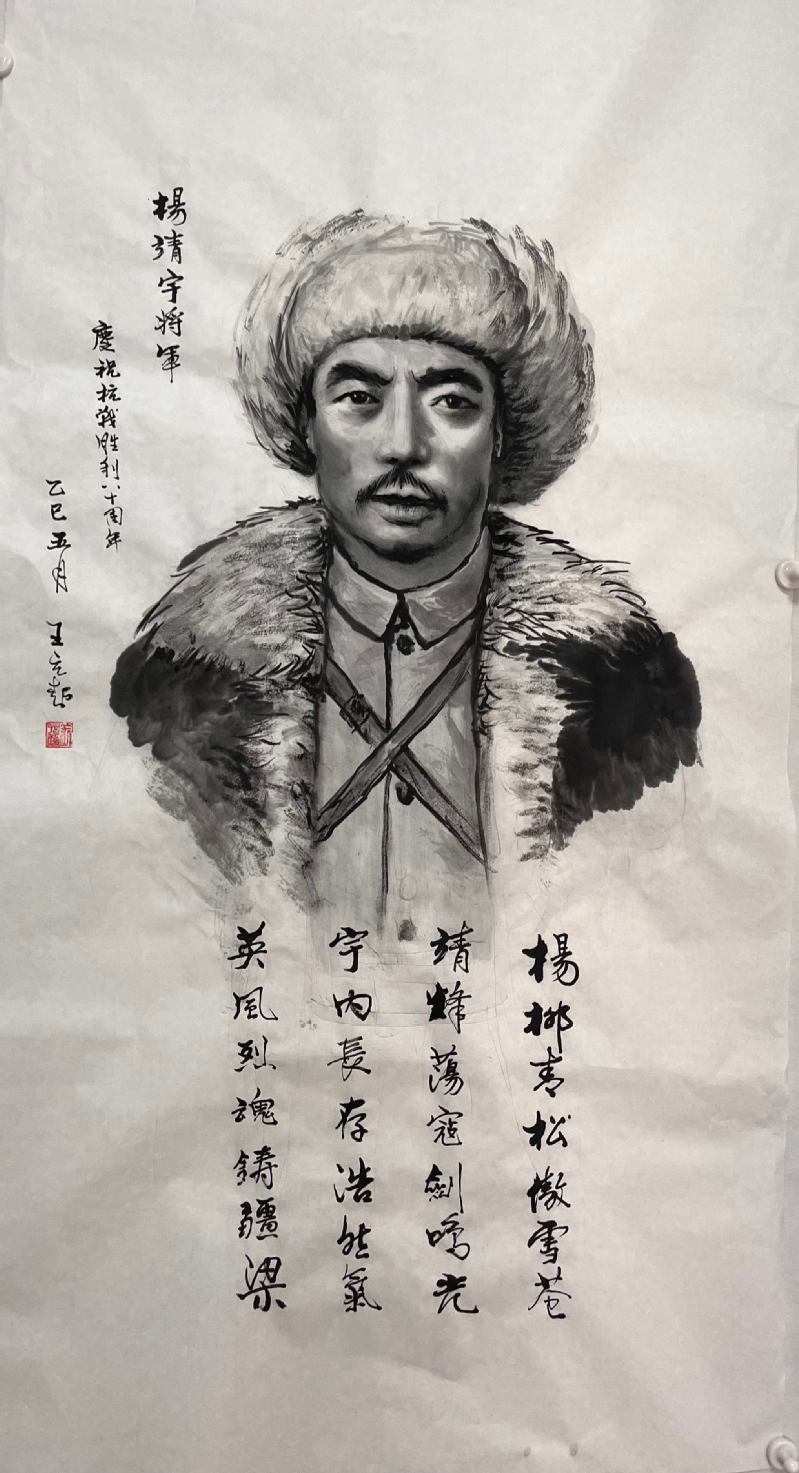 楊靖宇将軍
慶祝抗戰胜利八十周年
乙巳五月 王
楊柳青松傲雪苍
靖烽蕩寇劍鳴光
宇内長存浩然氣
英風烈魂鋳疆梁